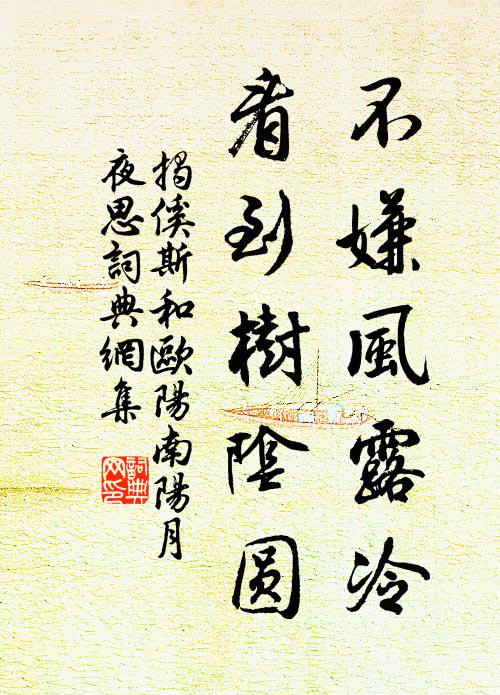 不嫌風露冷
看到樹陰圓
揭傒斯和歐陽南陽月
夜思詞典網集
詞典
网印